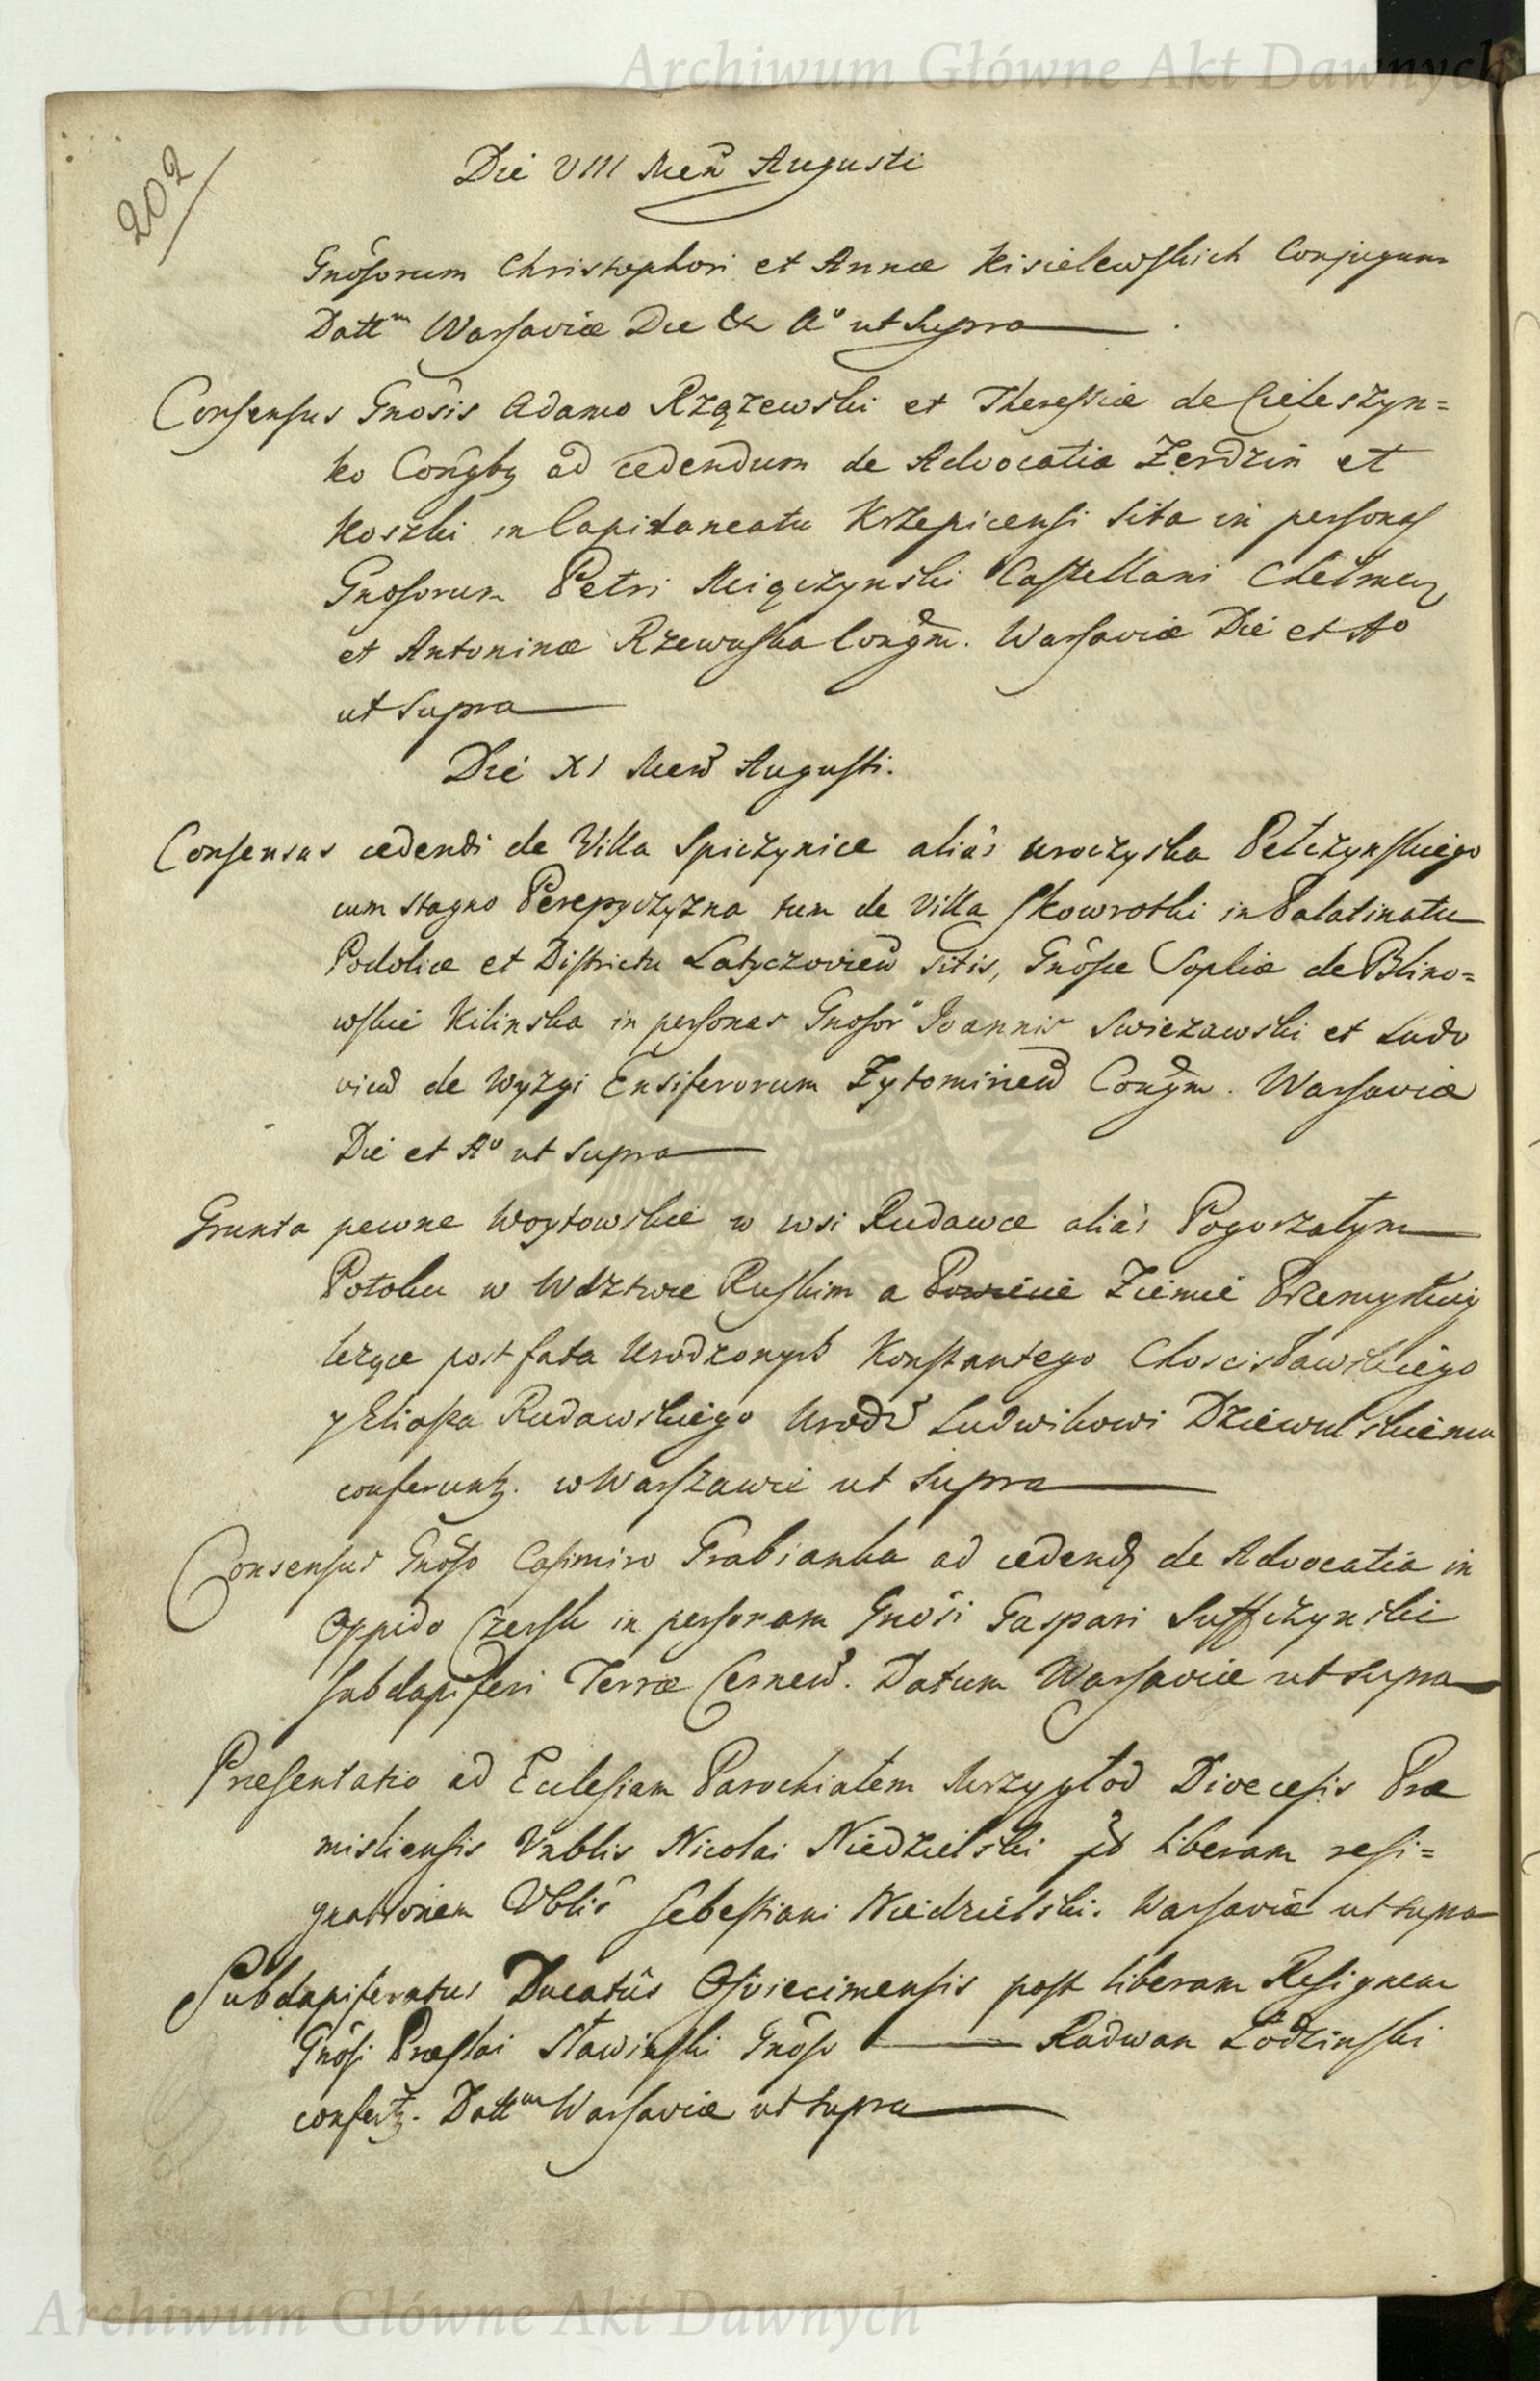 Archiwum Główne Akt Dawnych
202
Die VIII Mens Augusti
Gnosorum Christophori et Annæ Kisielewskich Conjugum
Dattm Warsaviæ Die & Ao ut Supra
Consensus Gnosis Adamo Rzązewski et Theressiæ de Cieleszyn=
ko Congbq ad cedendum de Advocatia Zerdzin et
Koszki in Capitaneatu Krzepicensi Sita in personas
Gnosorum Petri Miączynski Castellani Chełmen
et Antoninæ Rzewuska Congm. Warsaviæ Die et Ao
ut Supra
Die XI Mens Augusti.
Consensus cedendi de Villa Spiczynice alias uroczyska Pełczynskiego
cum stagno Perepyczyzna tum de Villa Skowrotki in Palatinatu
Podoliæ et Districtu Latyczovien sitis, Gnosæ Sophiæ de Blino=
wskie Kilinska in personas Gnosor Joannis Swiezawski et Ludo
vicæ de Wyzgi Ensiferorum Zytomirien Congm. Warsaviæ
Die et Ao ut Supra
Grunta pewne Woytowskie w wsi Rudawce alias Pogorzałym
Potoku w Wdztwie Ruskim a Powiecie Ziemie Przemyskiey
lezące post fata Urodzonych Konstantego Choscisławskiego
y Eliasza Rudawskiego Urodz Ludwikowi Dziewulskiemu
conferuntq. w Warszawie ut Supra
Consensus Gnoso Casimiro Grabianka ad cedend de Advocatia in
Oppido Czersk in personam Gnosi Gaspari Suffczynski
Subdapiferi Terræ Cernen. Datum Warsaviæ ut Supra
Præsentatio ad Ecclesiam Parochialem Mrzygłod Dioecesis Præ
misliensis Vnblis Nicolai Niedzielski liberam resi=
gnationem Vblis Sebestiani Niedzielski. Warsaviæ ut supra
Subdapiferatus Ducatus Osviecimensis post liberam Resignem
Gnosi Sławinski Gnoso Radwan Łodzinski
confertq. Dattum Warsaviæ ut supra
Archiwum Główne Akt Dawnych